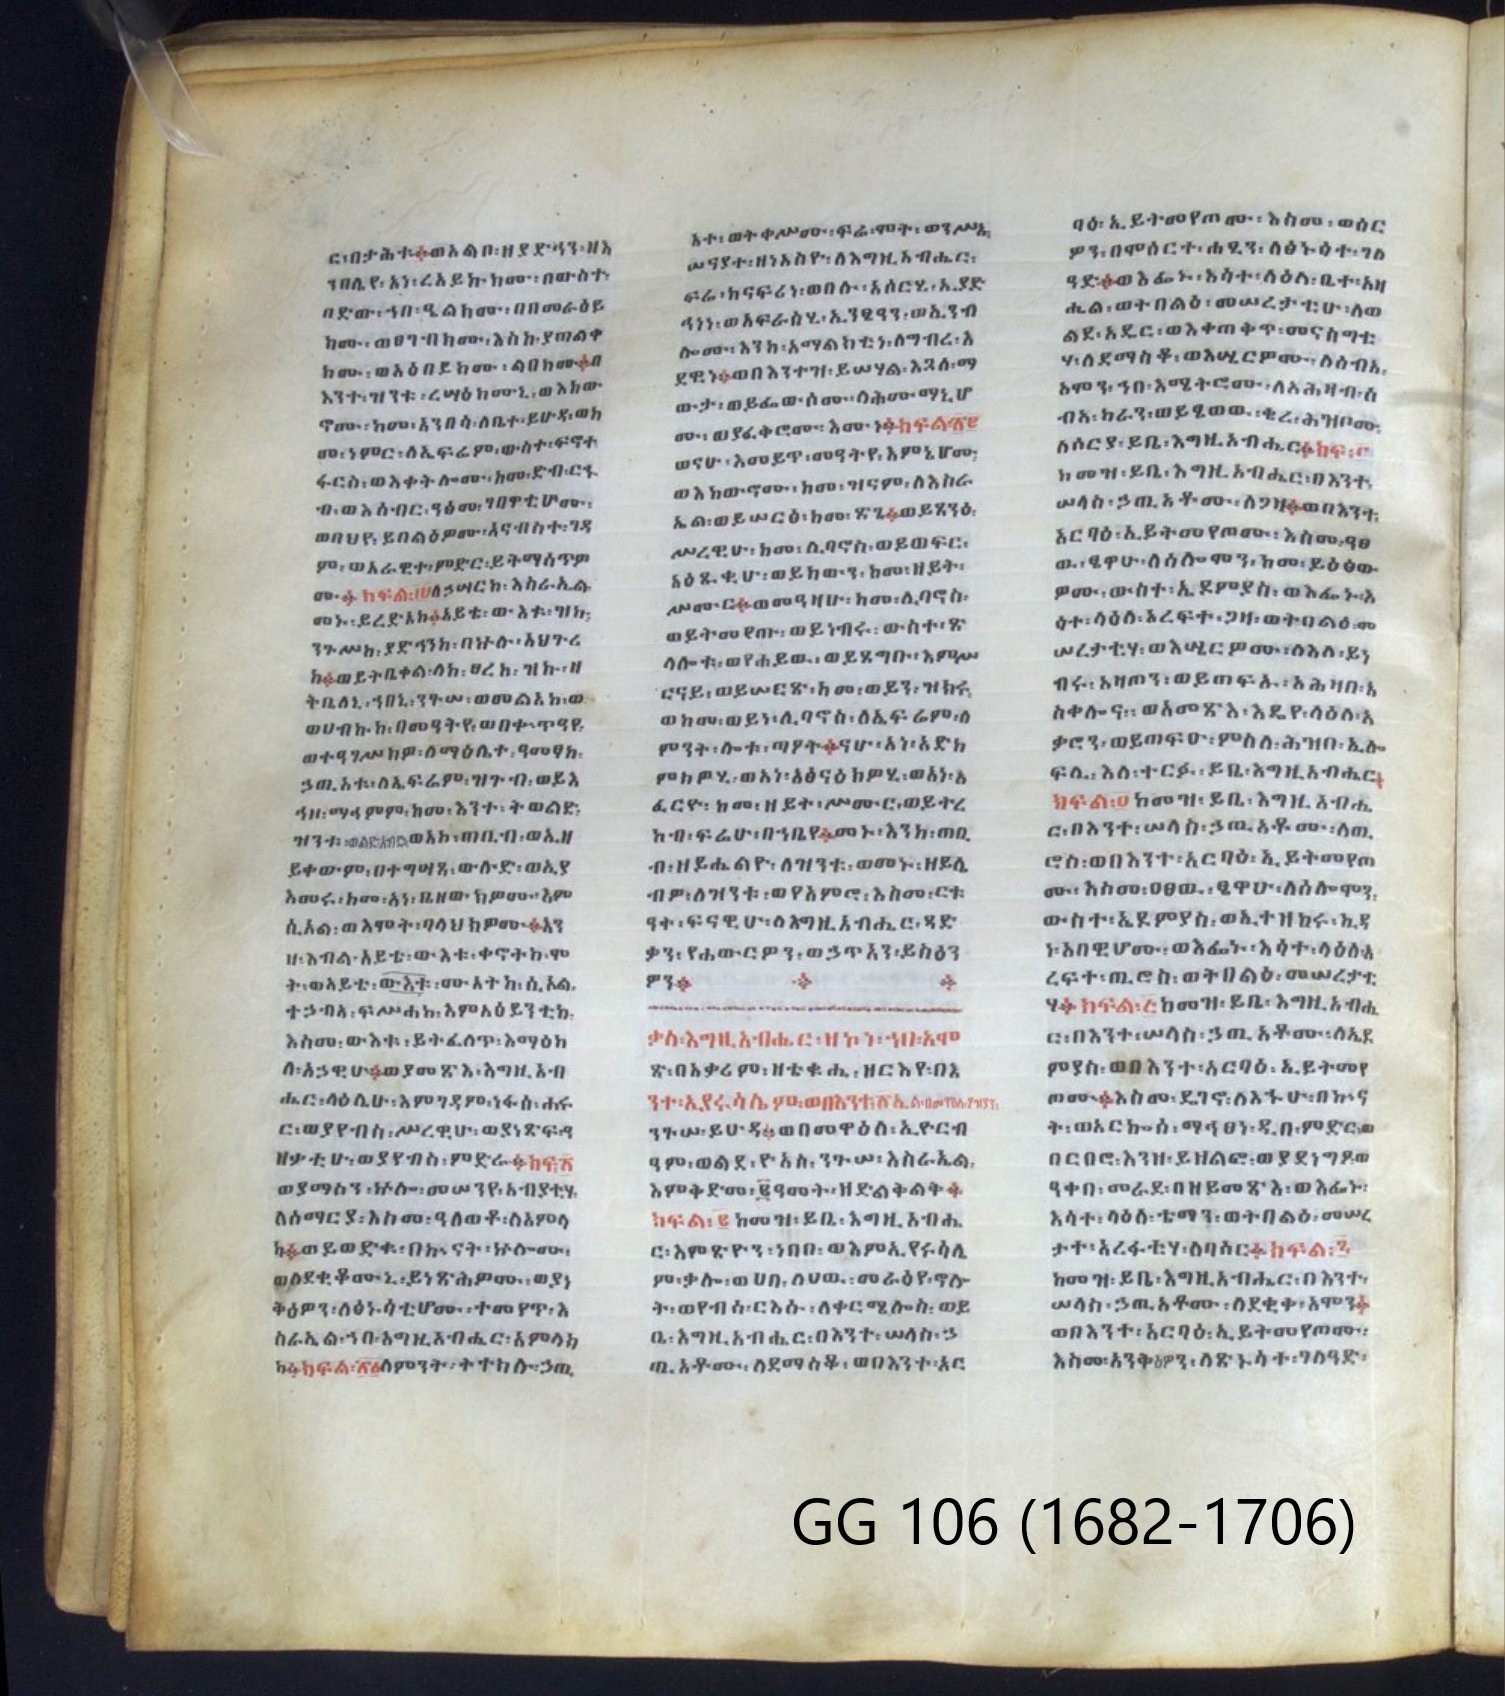 ር፡በታሕቱ፨ወአልቦ፡ዘያድኅን፡ዘእ
ንበሌየ፡አነ፡ረአይኩ፡ክሙ፡በውስተ፡
በድው፡ኀበ፡ዒልክሙ፡በበመራዕይ
ክሙ፡ወፀገብክሙ፡እስከ፡ያጠልቀ
ክሙ፡ወአዕበይክሙ፡ልበክሙ፨በ
እንተ፡ዝንቱ፡ረሣዕክሙኒ፡ወእከው
ኖሙ፡ከመ፡አንበሳ፡ለቤተ፡ይሁዳ፡ወከ
መ፡ነምር፡ለኤፍሬም፡ውስተ፡ፍኖተ፡
ፋርስ፡ወእቀትሎሙ፡ከመ፡ድብ፡ርኁ
ብ፡ወእሰብር፡ዓፅመ፡ገበዋቲሆሙ፡
ወበህየ፡ይበልዕዎሙ፡አናብስተ፡ገዳ
ም፡ወአራዊተ፡ምድር፡ይትማሰጥዎ
ሙ፨ክፍል፡
መኑ፡ይረድአከ፨አይቴ፡ውእቱ፡ዝከ፡
ንጉሥከ፡ያድኅንከ፡በኵሉ፡አህጉሪ
ከ፨ወይትቤቀል፡ለከ፡ፀረከ፡ዝኩ፡ዘ
ትቤለኒ፡ኀበኒ፡ንጉሠ፡ወመልአከ፡ወ
ወሀብኩከ፡በመዓትየ፡ወበቍጥዓየ፡
ወተዓገሥክዎ፡ለማዕሌተ፡ዓመፃከ፡
ኃጢአቱ፡ለኤፍሬም፡ዝጉብ፡ወይእ
ኅዘ፡ማሕምም፡ከመ፡እንተ፡ትወልድ፡
ዝንቱ፡ወአኮ፡ጠቢብ፡ወኢዘ
ይቀውም፡በተግሣጸ፡ውሉድ፡ወኢያ
እመሩ፡ከመ፡አነ፡ቤዘውክዎሙ፡እም
ሲኦል፡ወእሞት፡ባላህክዎሙ፨እን
ዘ፡እብል፡አይቴ፡ውእቱ፡ቀኖትከ፡ሞ
ት፡ወአይቴ፡ውእቱ፡ሙአትከ፡ሲኦል፡
ተኃብአ፡ፍሥሐከ፡እምአዕይንቲከ፡
እስመ፡ውእቱ፡ይትፈለጥ፡እማዕከ
ለ፡አኃዊሁ፨ወያመጽእ፡እግዚአብ
ሔር፡ላዕሌሁ፡እምገዳም፡ነፋሰ፡ሐሩ
ር፡ወያየብስ፡ሥረዊሁ፡ወያነጽፍ፡ዓ
ዘቃቲሁ፡ወያየብስ፡ምድራ፨ክፍ፡
ወያማስን፡ኵሎ፡መሠንየ፡አብያቲሃ፡
ለሰማርያ፡እስመ፡ዓለወቶ፡ለአምላ
ካ፨ወይወድቁ፡በኲናት፡ኵሎሙ፡
ወለደቂቆሙኒ፡ይነጽሕዎሙ፡ወያነ
ቅዕዎን፡ለፅኑሳቲሆሙ፡ተመየጥ፡እ
ስራኤል፡ኀበ፡እግዚአብሔር፡አምላክ
ከ፨ክፍል፡ለምንት፡ትተከሉ፡ኃጢ
አተ፡ወትቀሥሙ፡ፍሬ፡ሞት፡ወንሥኢ፡
ሠናያተ፡ዘነአስዮ፡ለእግዚአብሔር፡
ፍሬ፡ከናፍሪነ፡ወበሉ፡አሰርሂ፡ኢያድ
ኅነነ፡ወአፍራስሂ፡ኢንፄዓን፡ወኢንብ
ሎሙ፡እንከ፡አማልክቲነ፡ለግብረ፡እ
ደዊነ፨ወበእንተዝ፡ይሠሃል፡እጓለ፡ማ
ውታ፡ወይፌውሰሙ፡ሳሕሙ፡ማኒሆ
ሙ፡ወያፈቅሮሙ፡እሙነ፨ክፍል፡
ወናሁ፡እመይጥ፡መዓትየ፡እምኔሆሙ፡
ወእከውኖሙ፡ከመ፡ዝናም፡ለእስራ
ኤል፡ወይሠርፅ፡ከመ፡ጽጌ፨ወይጸንዕ፡
ሥረዊሁ፡ከመ፡ሊባኖስ፡ወይወፍር፡
አዕጹቂሁ፡ወይከውን፡ከመ፡ዘይት፡
ሥሙር፨ወመዓዛሁ፡ከመ፡ሊባኖስ፡
ወይትመየጡ፡ወይነብሩ፡ውስተ፡ጽ
ላሎቱ፡ወየሐይዉ፡ወይጸግቡ፡እምሥ
ርናይ፡ወይሠርጽ፡ከመ፡ወይን፡ዝክሩ፡
ወከመ፡ወይነ፡ሊባኖስ፡ዕኤፍሬም፡ለ
ምንት፡ሎቱ፡ጣዖት፨ናሁ፡አነ፡አድከ
ምክዎሂ፡ወአነ፡አፅናዕክዎሂ፡ወአነ፡አ
ፈርዮ፡ከመ፡ዘይት፡ሥሙር፡ወይትረ
ከብ፡ፍሬሁ፡በኀቤየ፨መኑ፡እንከ፡ጠቢ
ብ፡ዘይሔልዮ፡ለዝንቱ፡ወመኑ፡ዘይሌ
ብዎ፡ለዝንቱ፡ወየአምሮ፡እስመ፡ርቱ
ዓት፡ፍናዊሁ፡ለእግዚአብሔር፡ጻድ
ቃን፡የሐውርዎን፡ወኃጥአን፡ይስዕን
ዎን፨
ቃለ፡እግዚአብሔር፡ዘኮነ፡ኀበ፡አሞ
ጽ፡በአቃሬም፡ዘቴቁሔ፡ዘርእየ፡በእ
ንተ፡ኢየሩሳሌም፡ወበእንተ፡
ንጉሠ፡ይሁዳ፨ወበመዋዕለ፡ኢዮርብ
ዓም፡ወልደ፡ዮአስ፡ንጉሠ፡እስራኤል፡
እምቅድመ፡፪ዓመት፡ዘድልቅልቅ፨
ክፍል፡፩ከመዝ፡ይቤ፡እግዚአብሔ
ር፡እምጽዮን፡ነበበ፡ወእምኢየሩሳሌ
ም፡ቃሎ፡ወሀበ፡ለሀወ፡መራዕየ፡ኖሎ
ት፡ወየብሰ፡ርእሱ፡ለቀርሜሎስ፡ወይ
ቤ፡እግዚአብሔር፡በእንተ፡ሠላስ፡ኃ
ጢአቶሙ፡ለደማስቆ፡ወበእንተ፡አር
ባዕ፡ኢይትመየጦሙ፡እስመ፡ወሰር
ዎን፡በሞሰርተ፡ሐፂን፡ለፅኑዕተ፡ገለ
ዓድ፨ወእፌኑ፡እሳተ፡ላዕለ፡ቤተ፡አዛ
ሔል፡ወትበልዕ፡መሠረታቲሁ፡ለወ
ልደ፡አዴር፡ወእቀጠቅጥ፡መናስግቲ
ሃ፡ለደማስቆ፡ወእሤርዎሙ፡ለሰብአ፡
አሞን፡ኀበ፡እሜትሮሙ፡ለአሕዛብ፡ሰ
ብአ፡ካራን፡ወይፄወዉ፡ቂረ፡ሕዝቦሙ፡
ለሰርያ፡ይቤ፡እግዚአብሔር፨ክፍ፡
ከመዝ፡ይቤ፡እግዚአብሔር፡በእንተ፡
ሠላስ፡ኃጢአቶሙ፡ለጋዛ፨ወበእንተ፡
አርባዕ፡ኢይትመየጦሙ፡እስመ፡ዓፀ
ዉ፡ፄዋሁ፡ለሰሎሞን፡ከመ፡ይዕፅው
ዎሙ፡ውስተ፡ኢዶምያስ፡ወእፌኑ፡እ
ሳተ፡ላዕለ፡አረፍተ፡ጋዛ፡ወትበልዕ፡መ
ሠረታቲሃ፡ወእሤርዎሙ፡ለእለ፡ይነ
ብሩ፡አዛጦን፡ወይጠፍኡ፡አሕዛበ፡አ
ስቀሎና፡፡ወአመጽእ፡እዴየ፡ላዕለ፡አ
ቃሮን፡ወይጠፍኡ፡ምስለ፡ሕዝበ፡ኢሎ
ፍሊ፡እለ፡ተርፉ፡ይቤ፡እግዚአብሔር፨
ክፍል፡ከመዝ፡ይቤ፡እግዚአብሔ
ር፡በእንተ፡ሠላስ፡ኃጢአቶሙ፡ለጢ
ሮስ፡ወበእንተ፡አርባዕ፡ኢይትመየጦ
ሙ፡እስመ፡ዐፀዉ፡ፄዋሁ፡ለሰሎሞን፡
ውስተ፡ኤዶምያስ፡ወኢተዘከሩ፡ኪዳ
ነ፡አበዊሆሙ፡ወእፌኑ፡እሳተ፡ላዕለ፡አ
ረፍተ፡ጢሮስ፡ወትበልዕ፡መሠረታቲ
ሃ፨ክፍል፡ከመዝ፡ይቤ፡እግዚአብሔ
ር፡በእንተ፡ሠላስ፡ኃጢአቶሙ፡ለኤዶ
ምያስ፡ወበእንተ፡አርባዕ፡ኢይትመየ
ጦሙ፨እስመ፡ዴገኖ፡ለእኁሁ፡በኲና
ት፡ወአርኰሰ፡ማኅፀነ፡ዲበ፡ምድር፡ወ
በርበሮ፡እንዘ፡ይዘልፎ፡ወያደነግዖ፡ወ
ዓቀበ፡መራደ፡በዘይመጽእ፡ወእፌኑ፡
እሳተ፡ላዕለ፡ቴማን፡ወትበልዕ፡መሠረ
ታተ፡አረፋቲሃ፡ለባሶር፨ክፍል፡
ከመዝ፡ይቤ፡እግዚአብሔር፡በእንተ፡
ሠላስ፡ኃጢአቶሙ፡ለደቂቀ፡አሞን፨
ወበእንተ፡አርባዕ፡ኢይትመየጦሙ፡
እስመ፡አንቅዕዎን፡ለጽኑሳተ፡ገለዓድ፡
GG 106 (1682-1706)